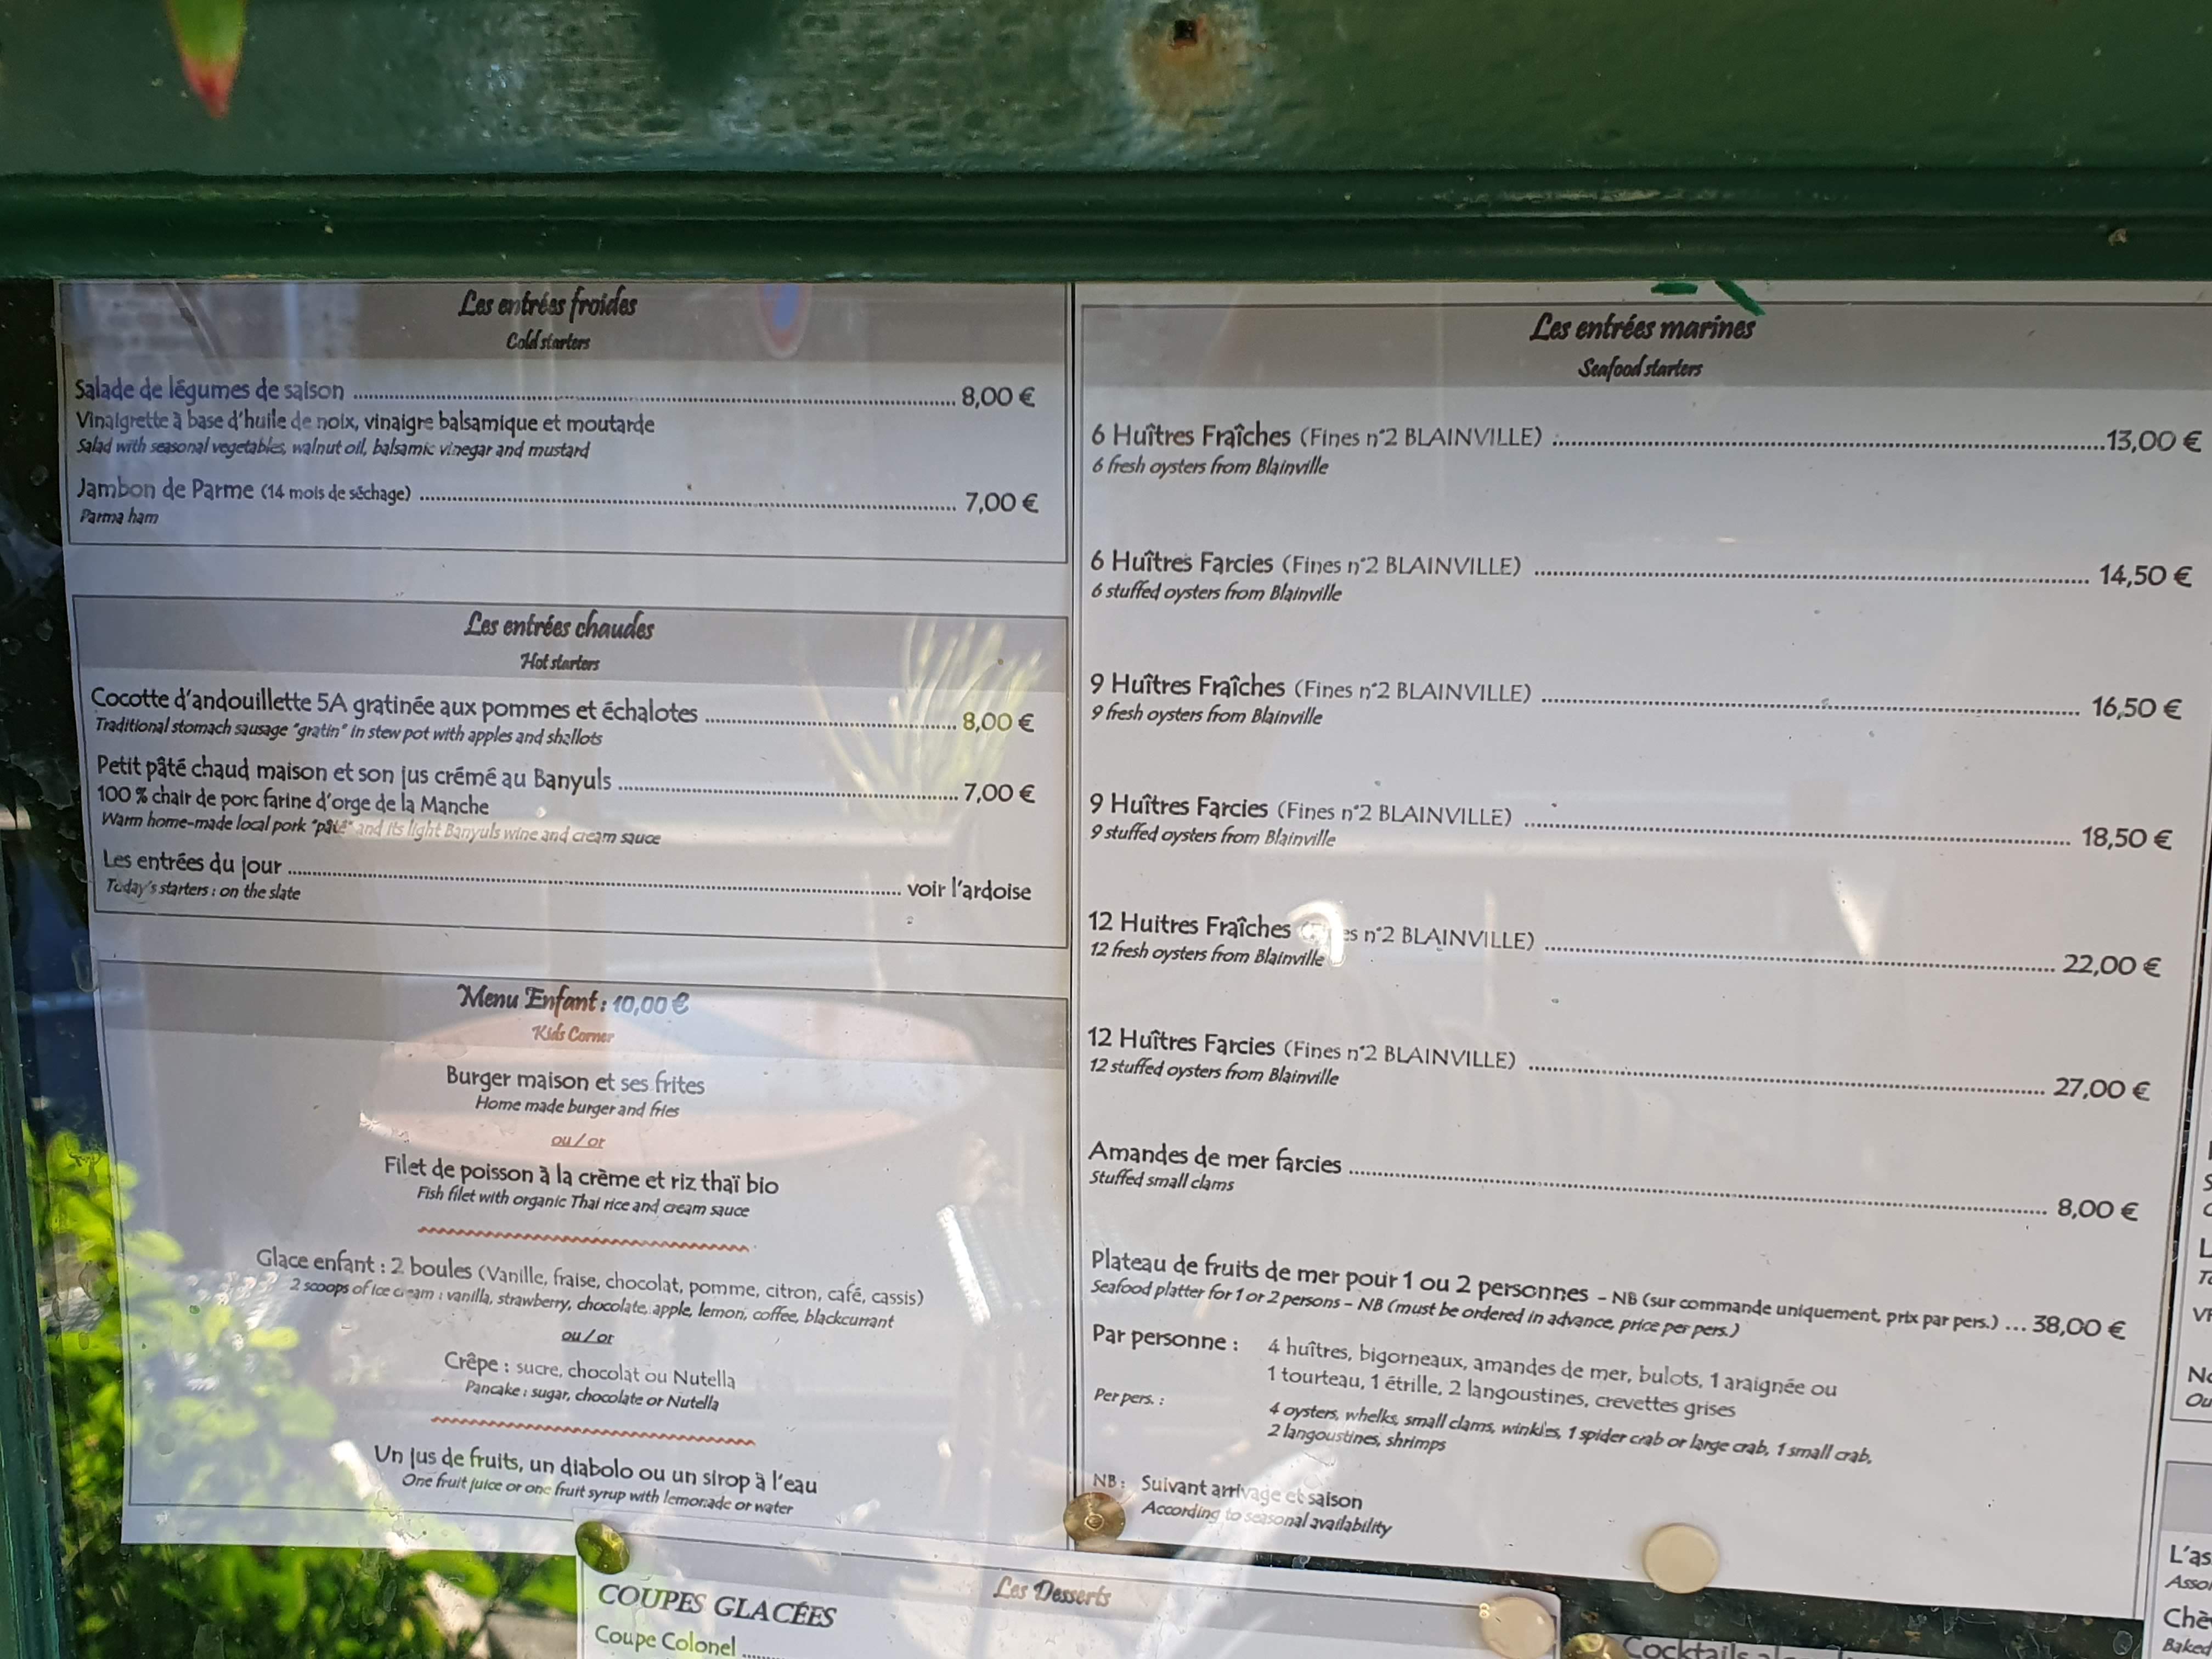 Les entrées froides
Cold starters
Salade de légumes de saison ........ 8,00 €
Vinaigrette à base d'huile de noix, vinaigre balsamique et moutarde
Salad with seasonal vegetables, walnut oil, balsamic vinegar and mustard
Jambon de Parme (14 mois de séchage) ........ 7,00 €
Parma ham
Les entrées chaudes
Hot starters
Cocotte d'andouillette 5A gratinée aux pommes et échalotes ........ 8,00 €
Traditional stomach sausage "gratin" in stew pot with apples and shallots
Petit pâté chaud maison et son jus crémé au Banyuls ........ 7,00 €
100 % chair de porc farine d'orge de la Manche
Warm home-made local pork "pâté" and its light Banyuls wine and cream sauce
Les entrées du jour ........ voir l'ardoise
Today's starters : on the slate
Menu Enfant : 10,00 €
Kids Corner
Burger maison et ses frites
Home made burger and fries
ou / or
Filet de poisson à la crème et riz thaï bio
Fish filet with organic Thai rice and cream sauce
Glace enfant : 2 boules (Vanille, fraise, chocolat, pomme, citron, café, cassis)
2 scoops of ice cream : vanilla, strawberry, chocolate, apple, lemon, coffee, blackcurrant
ou / or
Crêpe : sucre, chocolat ou Nutella
Pancake : sugar, chocolate or Nutella
Un jus de fruits, un diabolo ou un sirop à l'eau
One fruit juice or one fruit syrup with lemonade or water
Les entrées marines
Seafood starters
6 Huîtres Fraîches (Fines n°2 BLAINVILLE) ........ 13,00 €
6 fresh oysters from Blainville
6 Huîtres Farcies (Fines n°2 BLAINVILLE) ........ 14,50 €
6 stuffed oysters from Blainville
9 Huîtres Fraîches (Fines n°2 BLAINVILLE) ........ 16,50 €
9 fresh oysters from Blainville
9 Huîtres Farcies (Fines n°2 BLAINVILLE) ........ 18,50 €
9 stuffed oysters from Blainville
12 Huitres Fraîches n°2 BLAINVILLE) ........ 22,00 €
12 fresh oysters from Blainville
12 Huîtres Farcies (Fines n°2 BLAINVILLE) ........ 27,00 €
12 stuffed oysters from Blainville
Amandes de mer farcies ........ 8,00 €
Stuffed small clams
Plateau de fruits de mer pour 1 ou 2 personnes - NB (sur commande uniquement, prix par pers.) ... 38,00 €
Seafood platter for 1 or 2 persons - NB (must be ordered in advance, price per pers.)
Par personne : 4 huîtres, bigorneaux, amandes de mer, bulots, 1 araignée ou
1 tourteau, 1 étrille, 2 langoustines, crevettes grises
Per pers. : 4 oysters, whelks, small clams, winkles, 1 spider crab or large crab, 1 small crab,
2 langoustines, shrimps
NB : Suivant arrivage et saison
According to seasonal availability
Les Desserts
COUPES GLACÉES
Coupe Colonel ........
Cocktails
L'as
Baked